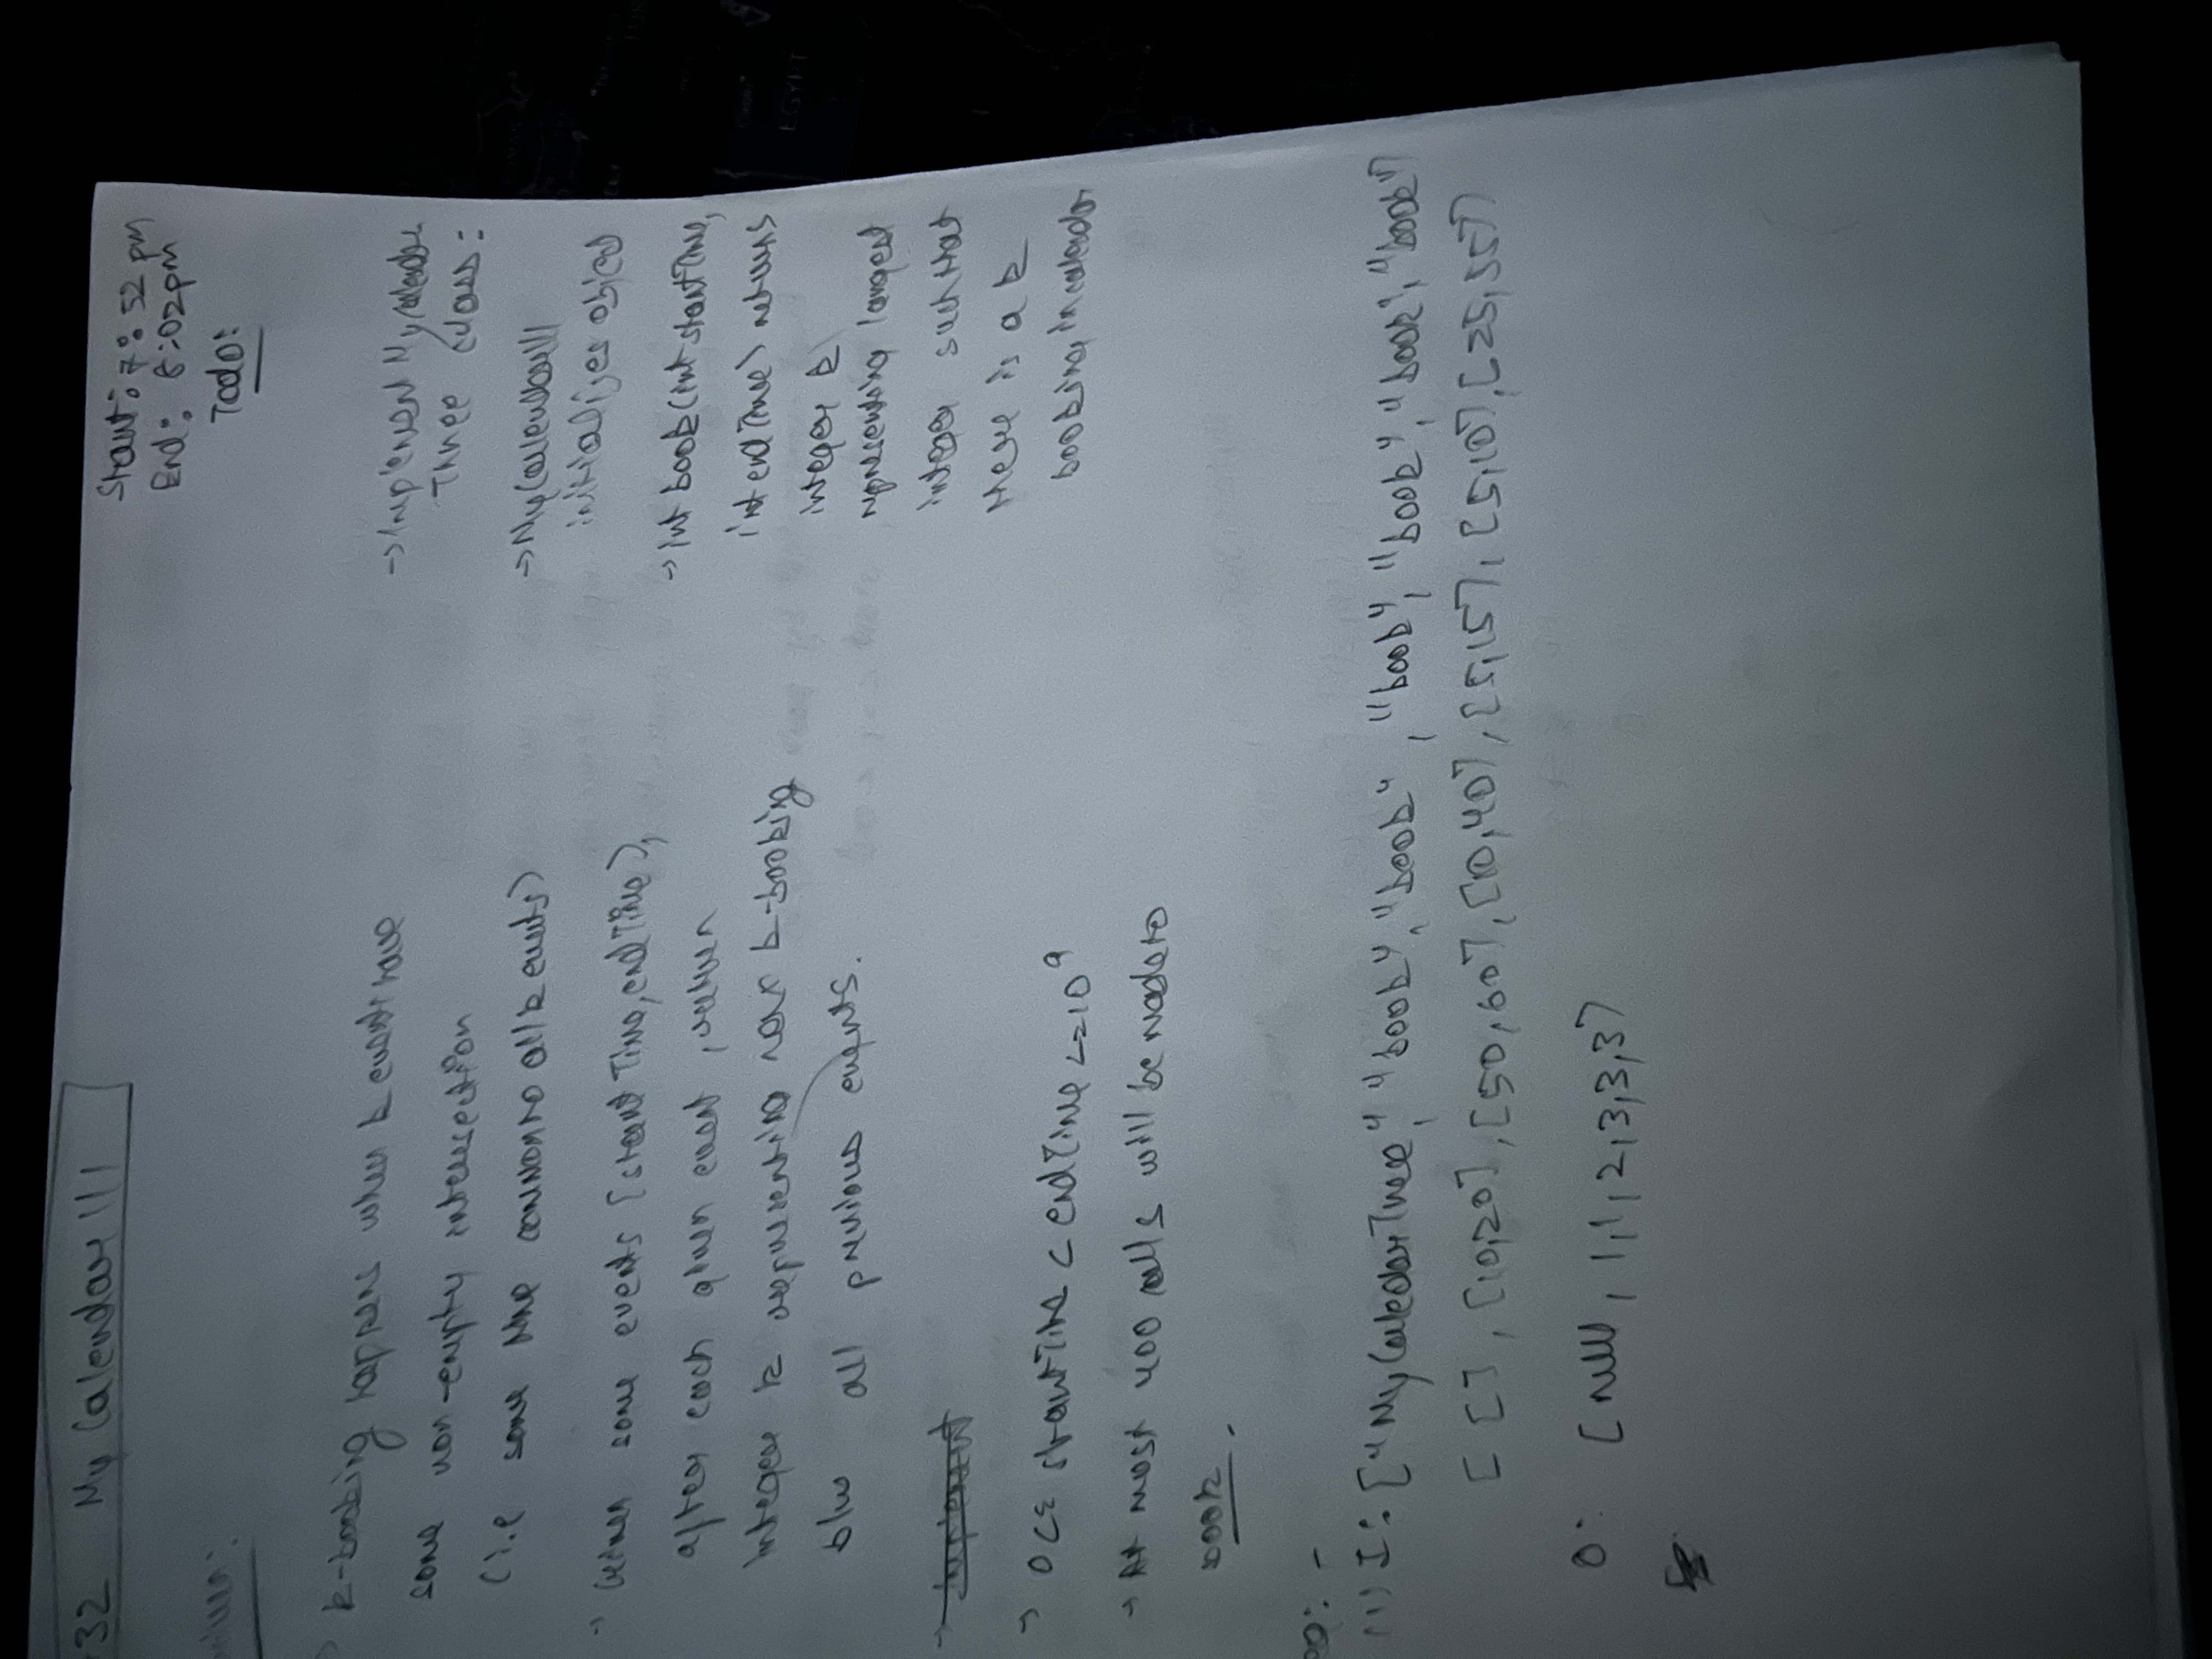 32 My Calendar III
Start: 7:52 pm
End: 8:02pm
Todo:
k-booking happens when k events have
some non-empty intersection
(i.e some time common to all k events)
→ Given some events [startTime, endTime),
after each given event, return
integer k representing max k-booking
b/w all previous events.
→ implement
→ 0<= startTime < endTime <=10^9
→ At most 400 calls will be made to
book.
→ Implement MyCalendar
Three class:
→ MyCalendarIII
initializes object
→ int book(int startTime,
int endTime) returns
integer k
representing largest
integer such that
there is a k
booking in calendar
(1) I: ["MyCalendarThree", "book", "book", "book", "book", "book", "book"]
[ [], [10,20], [50,60], [10,40], [5,15], [5,10], [25,55]]
O: [null, 1,1,2,3,3,3]
EGYPT